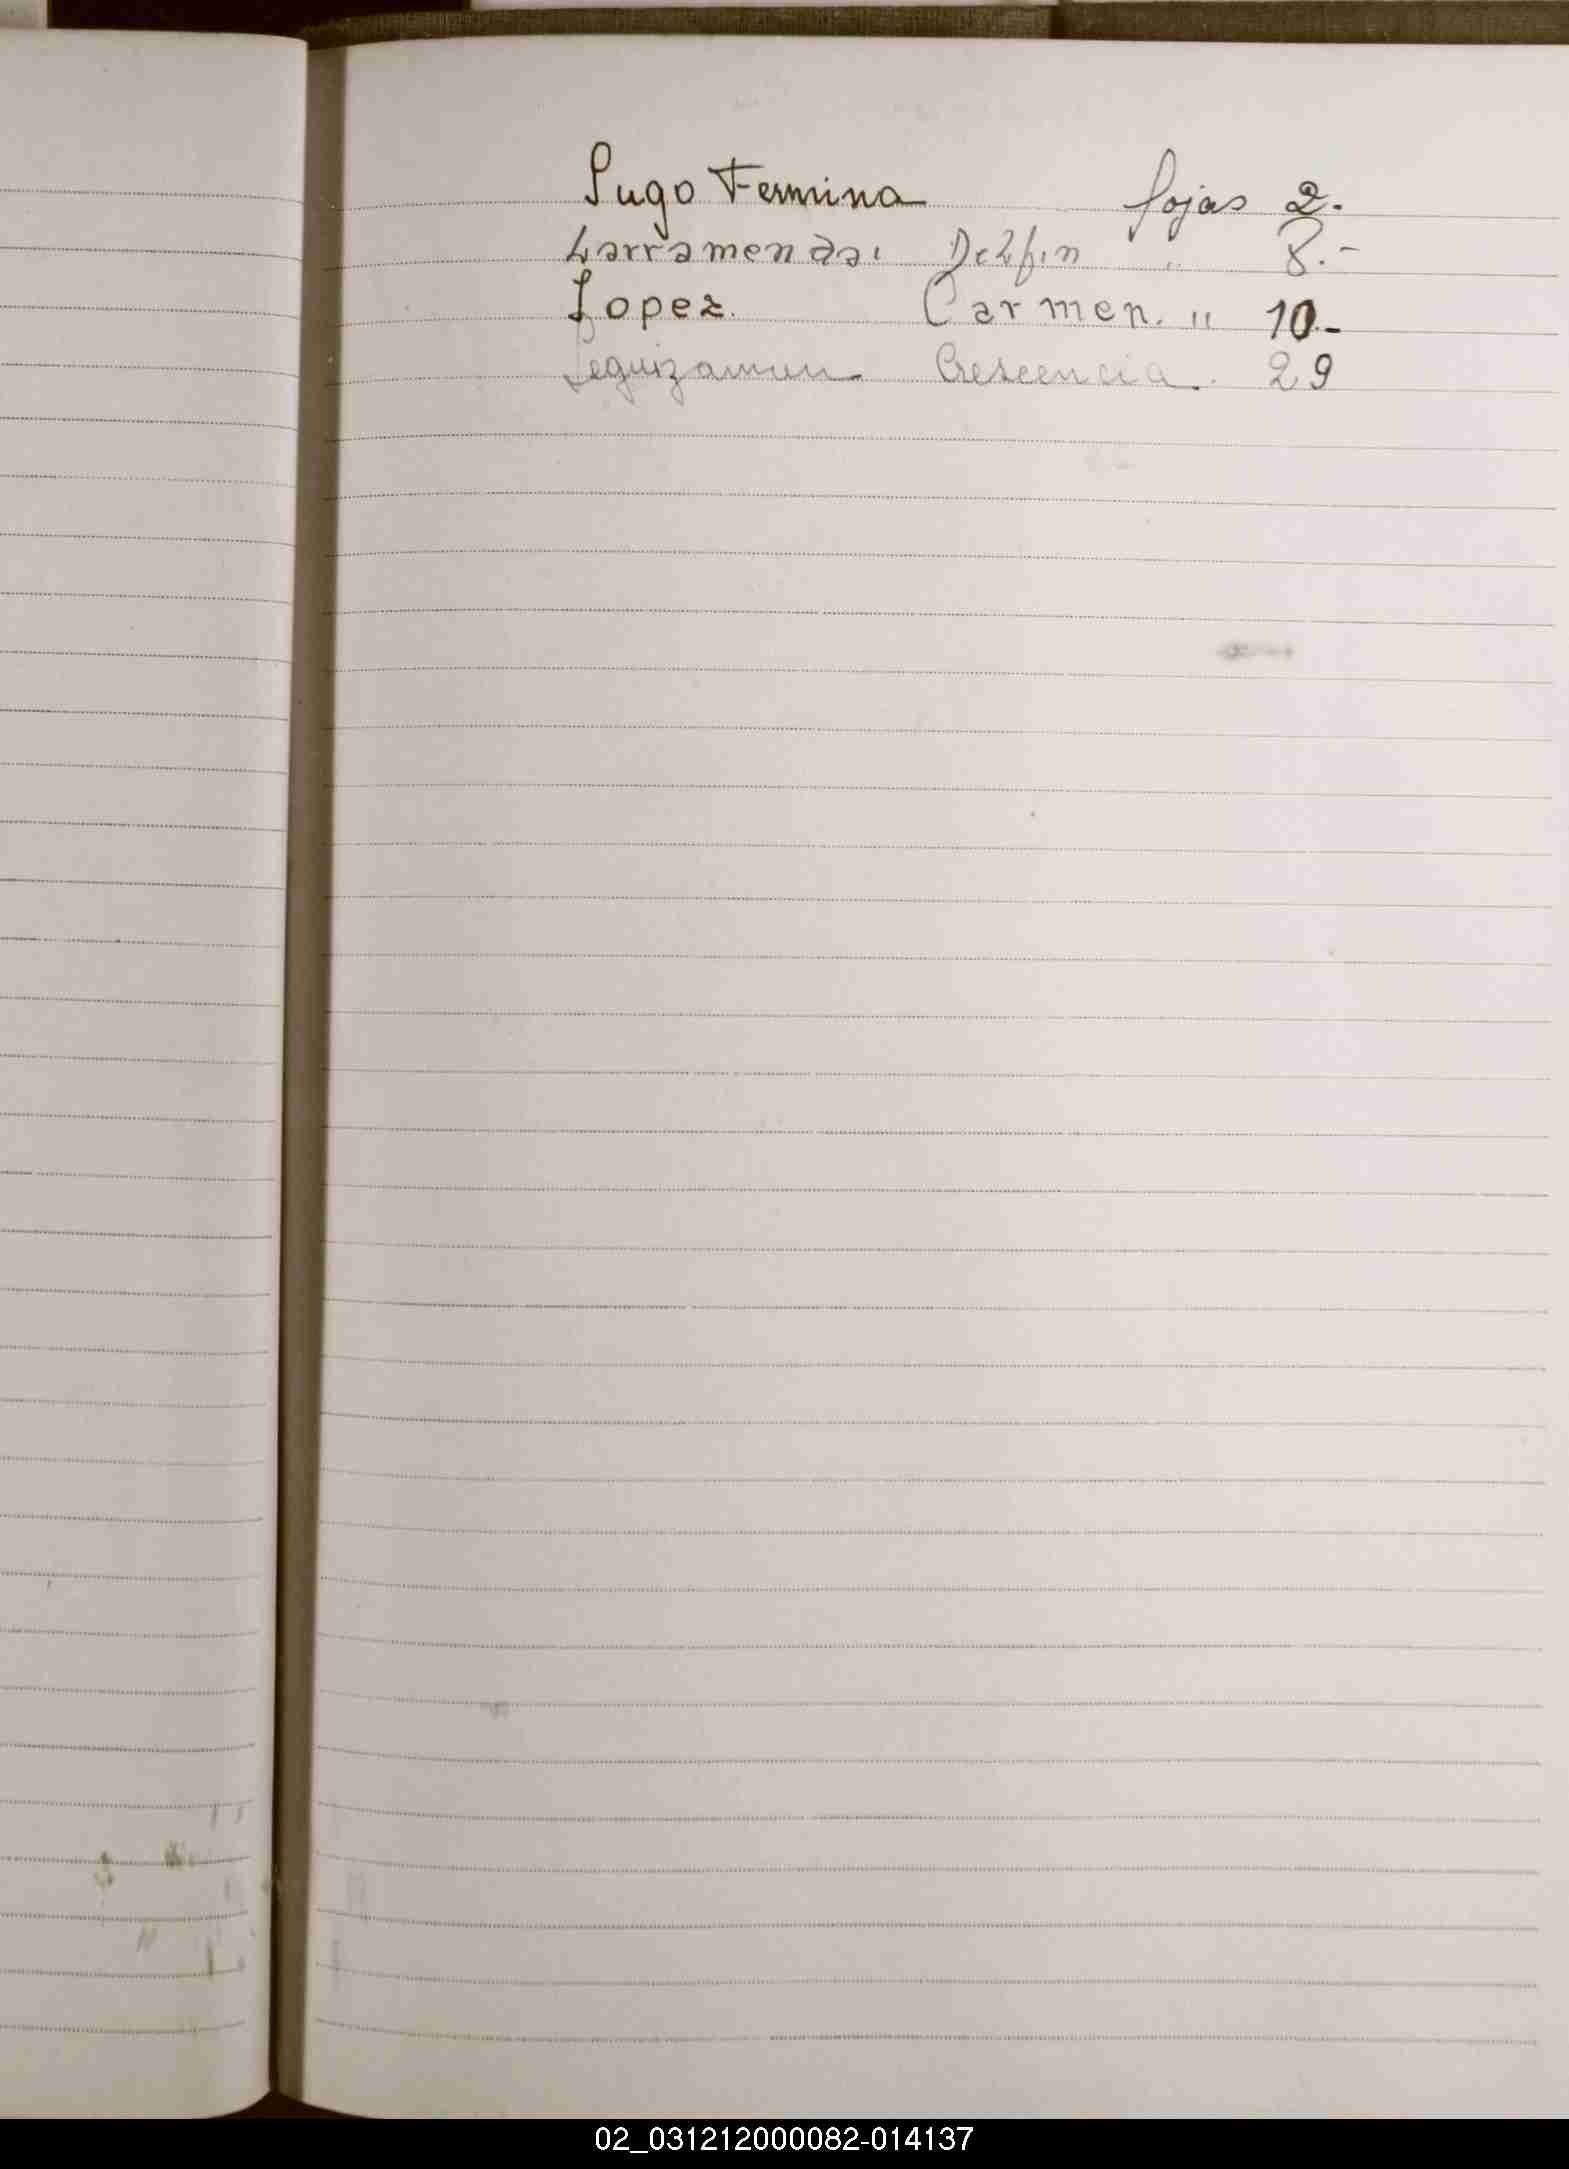 Lugo Fermina fojas 2.
Larramendi Delfin " 8.-
Lopez. Carmen. " 10.-
Leguizamon Crescencia. 29
02_031212000082-014137